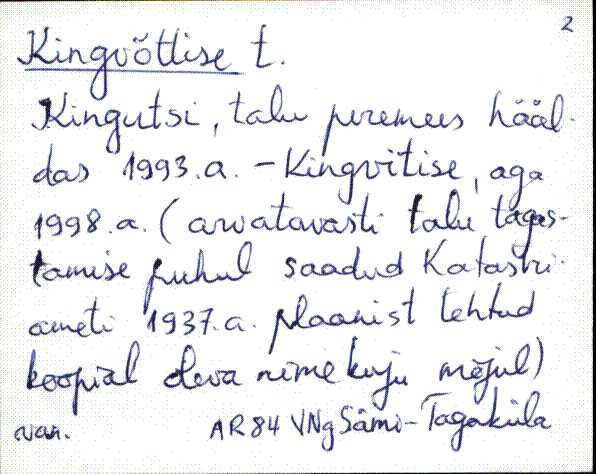 2
Kingvõttise t.
Kingutsi, talu peremees hääl-
das 1993.a. - Kingvitise, aga
1998.a. (arvatavasti talu tagas-
tamise puhul saadud Katastri-
ameti 1937.a. plaanist tehtud
koopial oleva nimekuju mõjul)
van. AR 84 VNg Sämi-Tagaküla